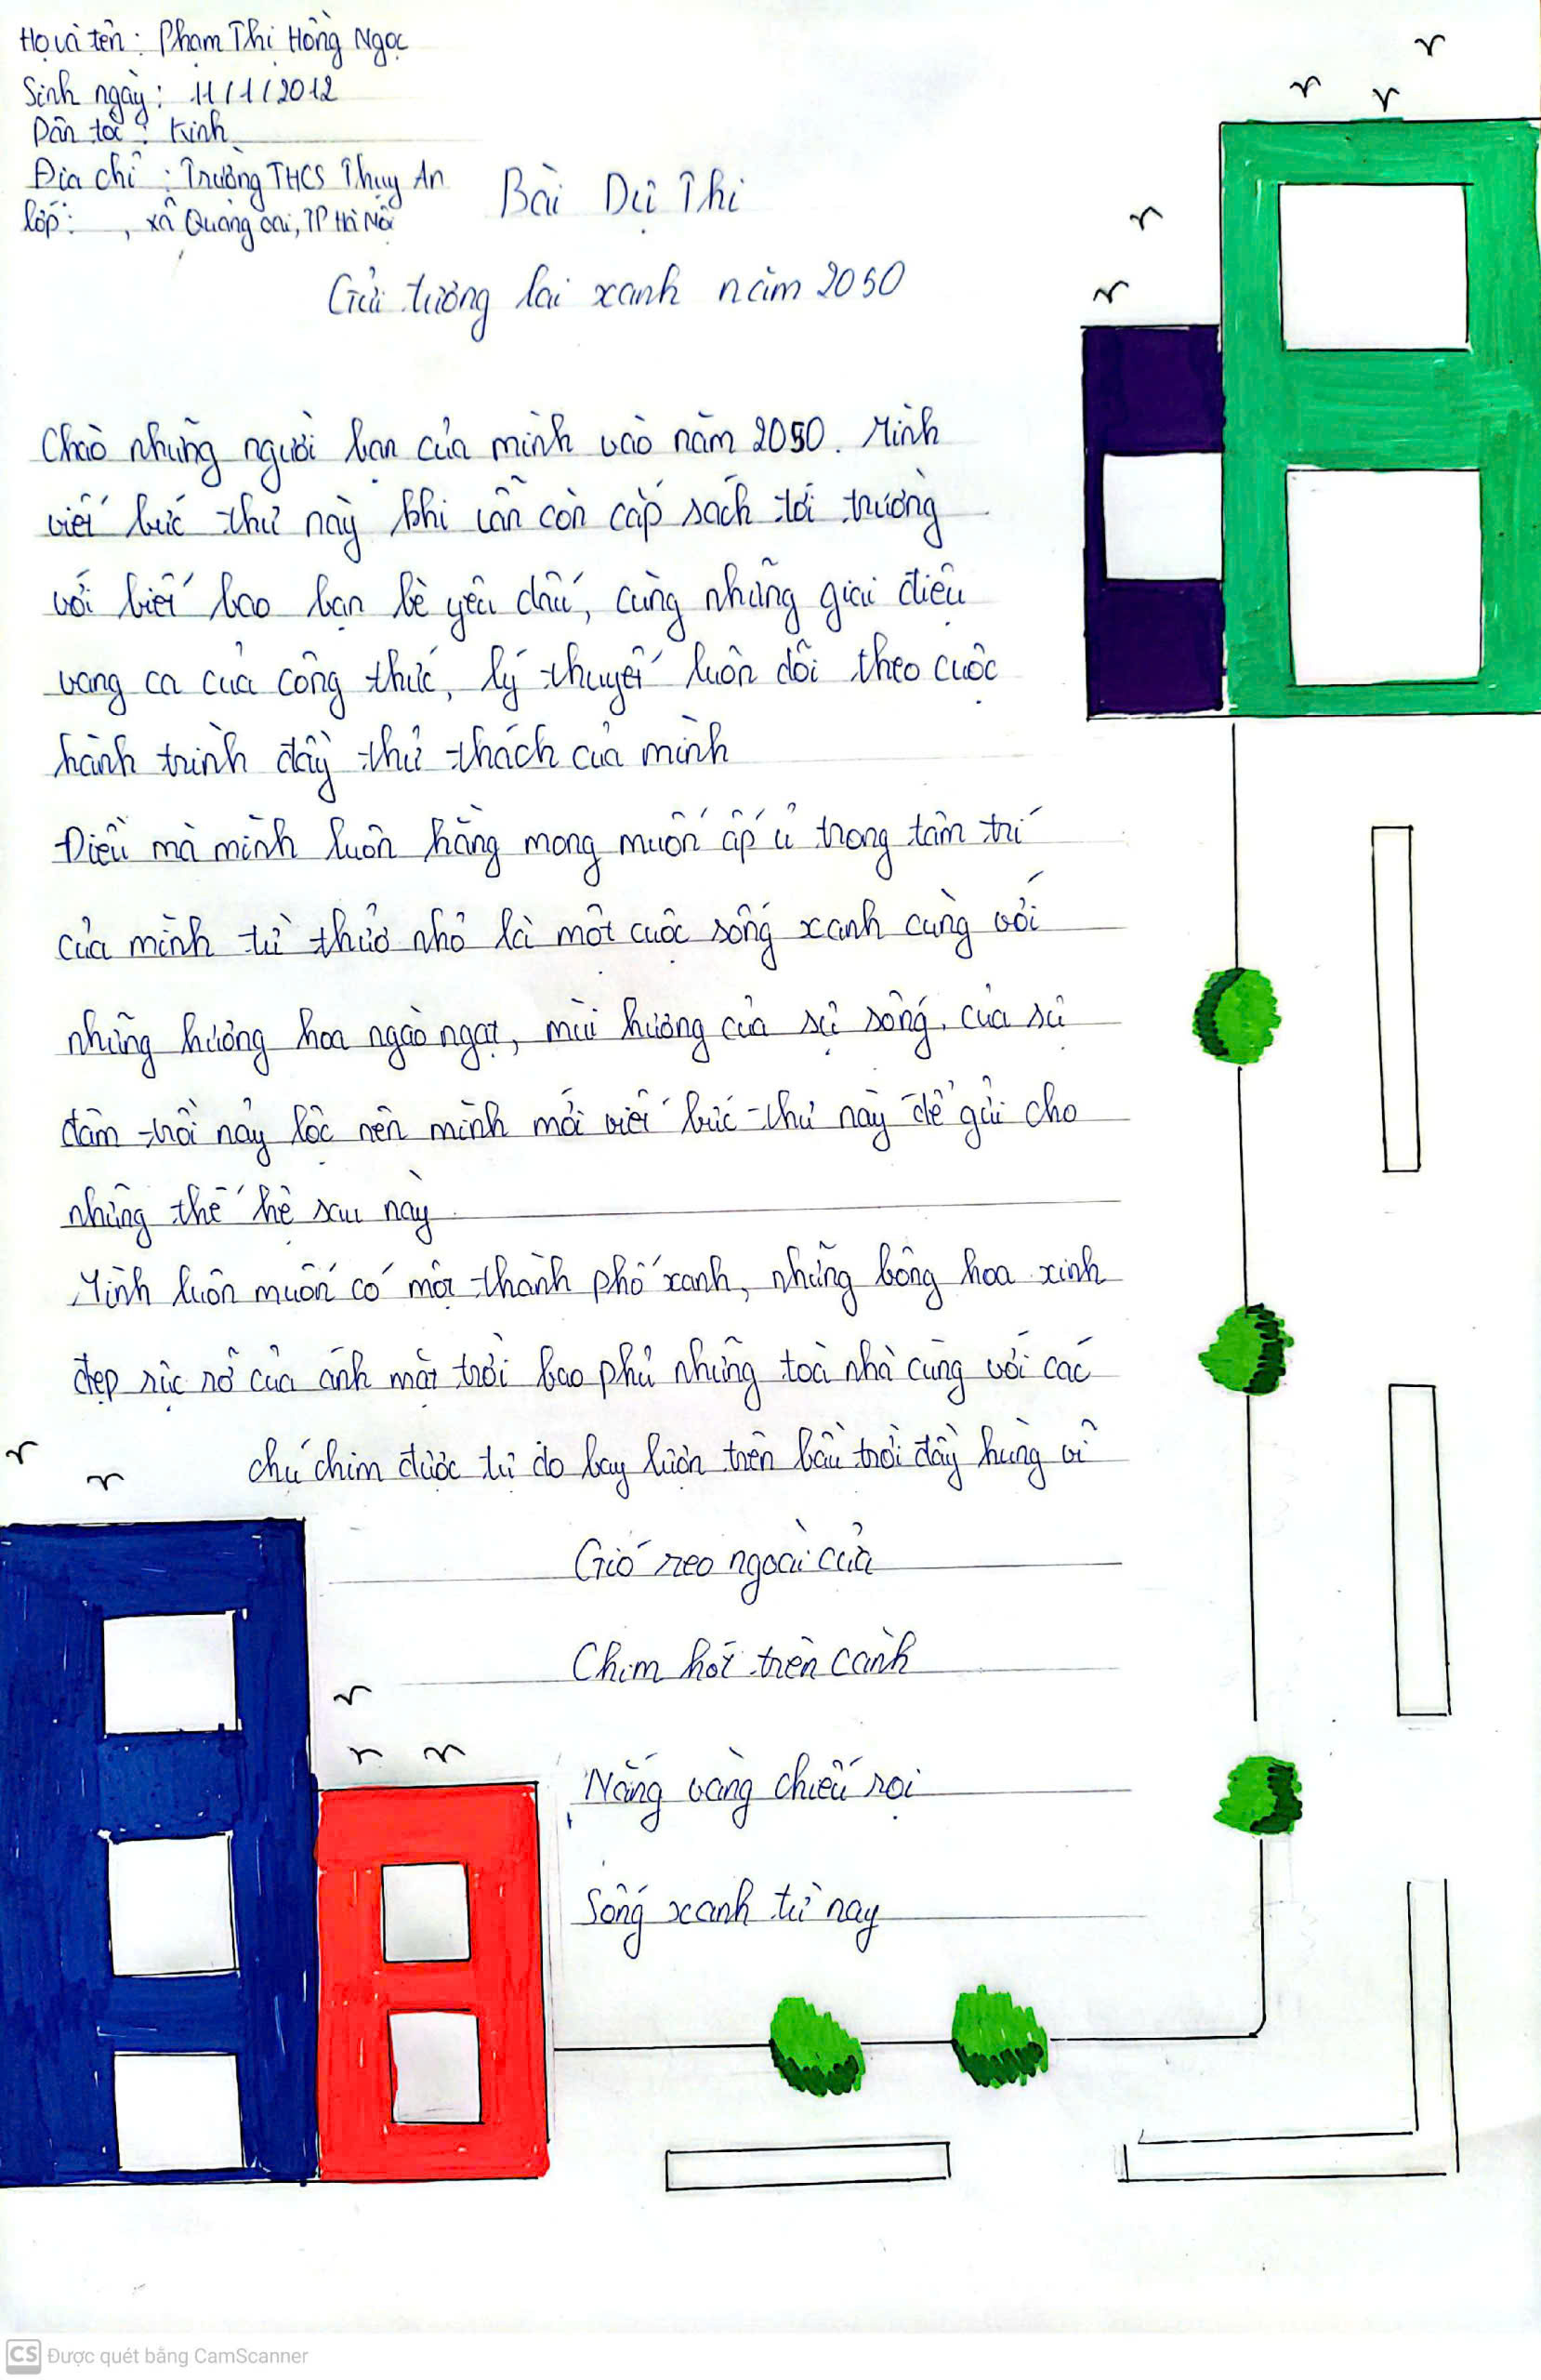 Họ và tên : Phạm Thị Hồng Ngọc
Sinh ngày : 11/1/2012
Dân tộc : Kinh
Địa chỉ : Trường THCS Thụy An
lớp: , xã Quảng Oai, TP Hà Nội
Bài Dự Thi
Gửi tương lai xanh năm 2050
Chào những người bạn của mình vào năm 2050. Mình
viết bức thư này khi vẫn còn cắp sách tới trường
với biết bao bạn bè yêu dấu, cùng những giai điệu
vang ca của công thức, lý thuyết luôn dõi theo cuộc
hành trình đầy thử thách của mình
Điều mà mình luôn hằng mong muốn ấp ủ trong tâm trí
của mình từ thưở nhỏ là một cuộc sống xanh cùng với
những hương hoa ngào ngạt, mùi hương của sự sống, của sự
đâm trồi nảy lộc nên mình mới viết bức thư này để gửi cho
những thế hệ sau này
Mình luôn muốn có một thành phố xanh, những bông hoa xinh
đẹp rực rỡ của ánh mặt trời bao phủ những toà nhà cùng với các
chú chim được tự do bay lượn trên bầu trời đầy hùng vĩ
Gió reo ngoài cửa
Chim hót trên cành
Nắng vàng chiếu rọi
Sống xanh từ nay
CS Được quét bằng CamScanner